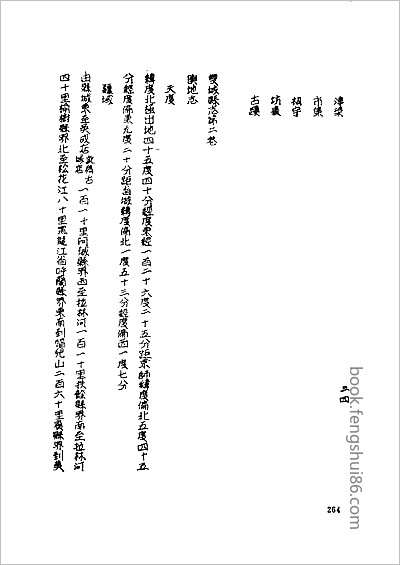 津梁
市集
祠宇
坊表
古蹟
雙城縣志第二卷
輿地志
天度
緯度北極出地四十五度四十分經度東經一百二十六度二十五分距京師緯度偏北五度四十五
分經度偏東九度二十分距省城緯度偏北一度五十三分經度偏西一度七分
疆域
由縣城東至英成店 一百一十里阿城縣界西至拉林河一百一十里扶餘縣界南至拉林河
四十里榆樹縣界北至松花江八十里黑龍江省呼蘭縣界東南到帽兒山二百六十里賓縣界到
三四
264
book.fengshui86.com